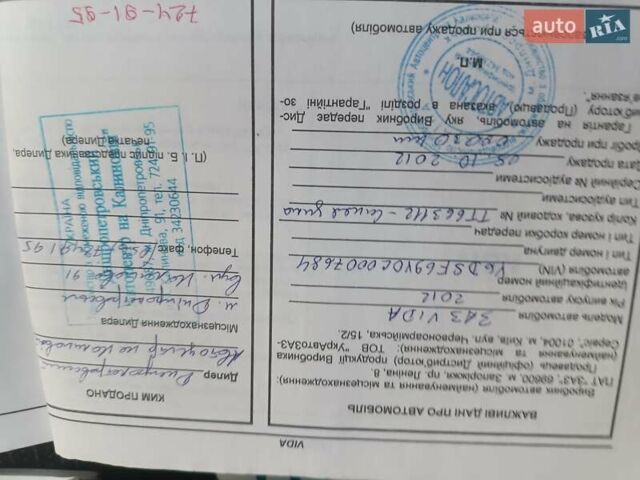 VIDA
ВАЖЛИВІ ДАНІ ПРО АВТОМОБІЛЬ
Виробник автомобіля (найменування та місцезнаходження):
ПАТ "ЗАЗ", 69600, м. Запоріжжя, пр. Леніна, 8.
Продавець (офіційний Дистриб'ютор) продукції Виробника
(найменування та місцезнаходження): ТОВ "УкрАвтоЗАЗ-
Сервіс", 01004, м. Київ, вул. Червоноармійська, 15/2.
Модель автомобіля ЗАЗ VIDA
Рік випуску автомобіля 2012
Ідентифікаційний номер
автомобіля (VIN) Y6DSF69Y0C0007684
Тип і номер двигуна
Тип і номер коробки передач
Колір кузова, кодовий № TT663112 -
Тип аудіосистеми
Серійний № аудіосистеми
Дата продажу 05.10.2012
Пробіг при продажу км
Гарантія на автомобіль, яку Виробник передає Дис-
триб'ютору (Продавцю), вказана в розділі "Гарантійні зо-
бов'язання".
М.П.
(заповнюється при продажу автомобіля)
КИМ ПРОДАНО
Дилер Дніпропетровський
Автоцентр на Калинова
Місцезнаходження Дилера
м. Дніпропетровськ
вул. Калинова 91
Телефон, факс 7249195
(П. І. Б. і підпис представника Дилера,
печатка Дилера)
УКРАЇНА
Дніпропетровський
Автоцентр на Калиновій
Дніпропетровськ
Калинова, 91, тел. 724-91-95
код 34230644
724-91-95
АВТОСАЛОН
auto RIA.com